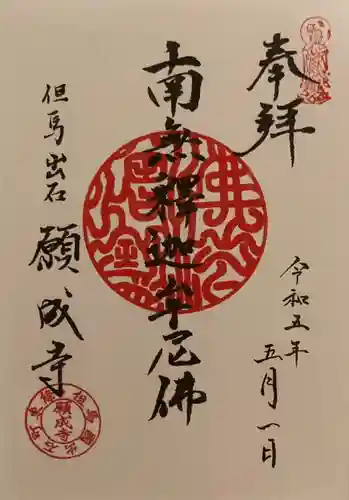 奉拝
令和五年
五月一日
南無釋迦牟尼佛
但馬出石
願成寺
願成寺